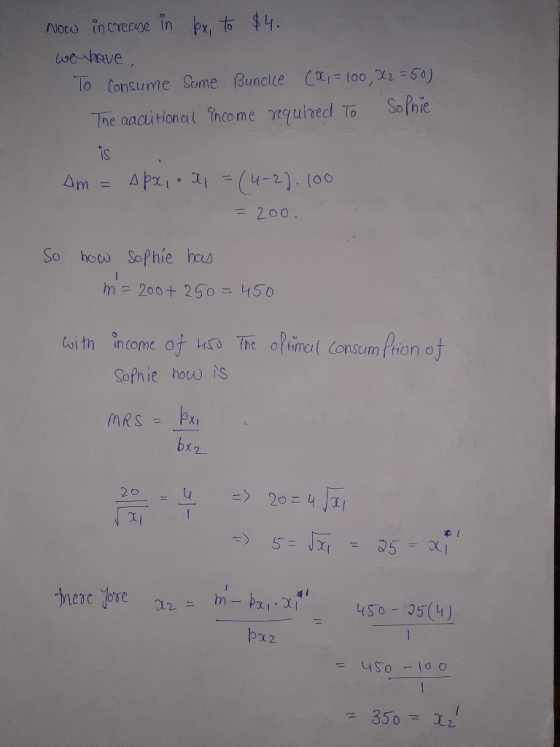 Now increase in px₁ to $4.
we have,
To Consume Same Bundle (x₁=100, x₂=50)
The additional income required To Sophie
is
Δm = Δpx₁ · x₁ = (4-2) · 100
= 200.
So now Sophie has
m' = 200 + 250 = 450
with income of 450 The optimal consumption of
Sophie now is
MRS = px₁ / px₂
20 / √x₁ = 4 / 1 => 20 = 4 √x₁
=> 5 = √x₁ = 25 = x₁*'
therefore x₂ = (m' - px₁ · x₁*') / px₂ = (450 - 25(4)) / 1
= (450 - 100) / 1
= 350 = x₂'